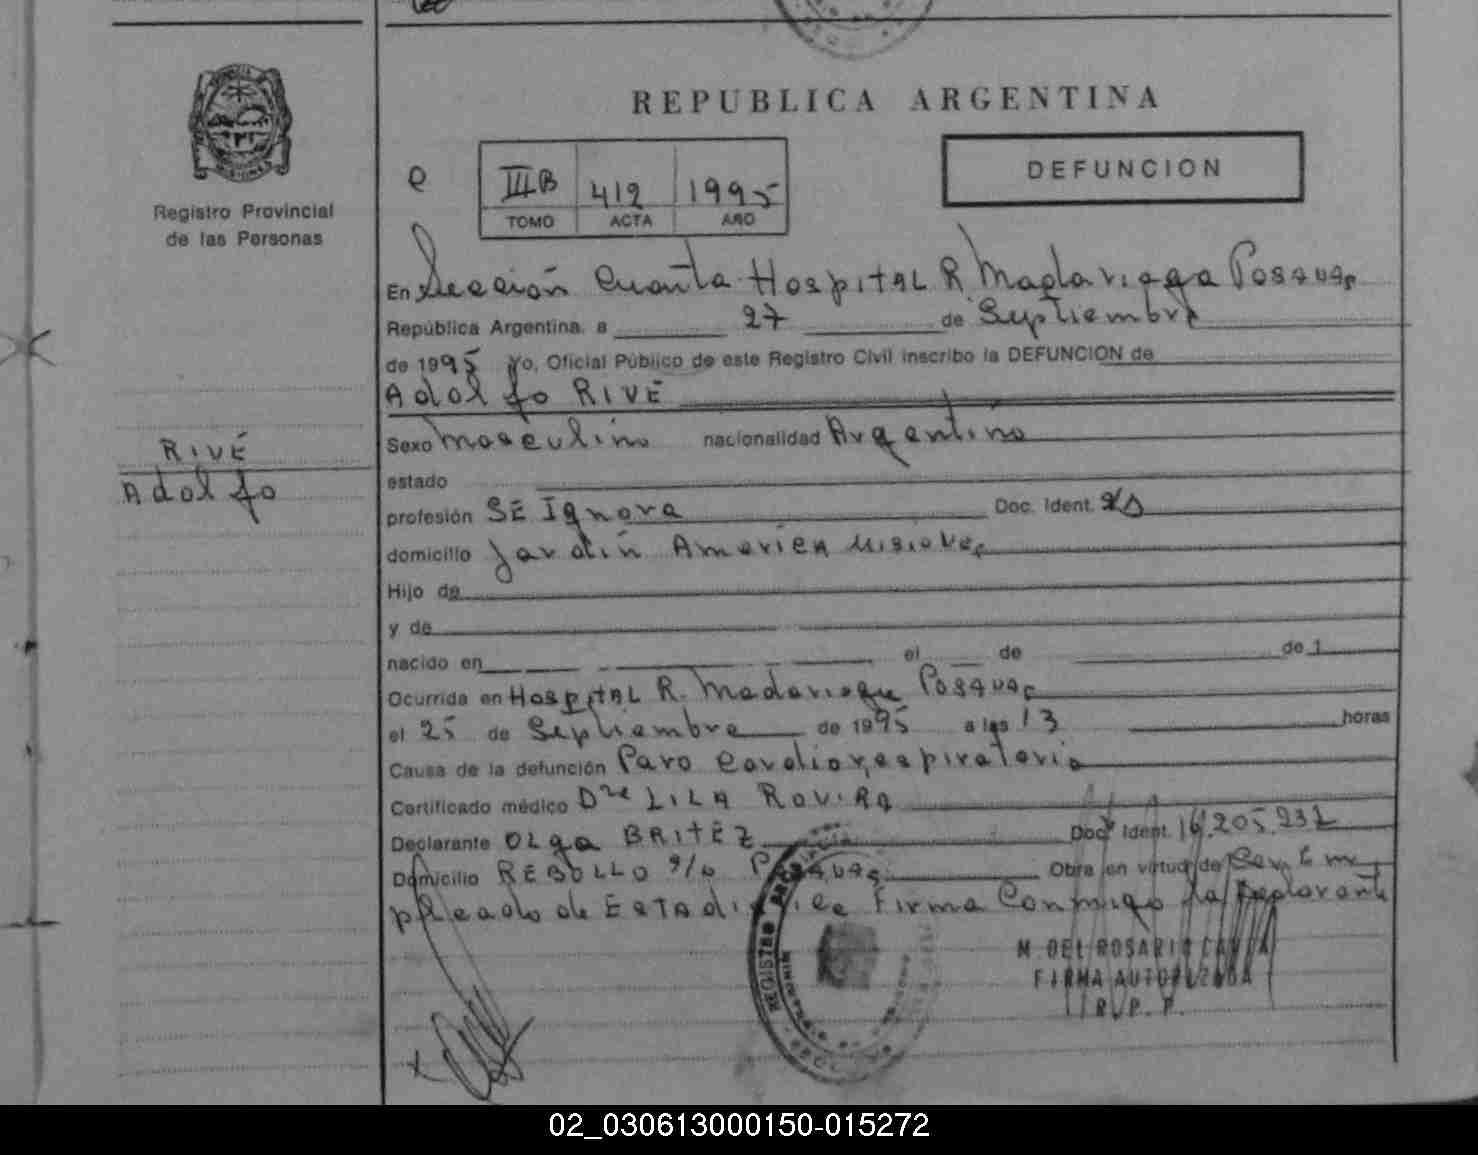 REPUBLICA ARGENTINA
DEFUNCION
e
III B 412 1995
TOMO ACTA AÑO
Registro Provincial
de las Personas
En Sección Cuarta Hospital R Madariaga Posadas
República Argentina, a 27 de Septiembre
de 1995 Yo, Oficial Público de este Registro Civil inscribo la DEFUNCION de
Adolfo RIVÉ
RIVÉ
Adolfo
Sexo masculino nacionalidad Argentino
estado
profesión SE Ignora Doc. Ident.
domicilio Jardín América Misiones
Hijo de
y de
nacido en el de de 1
Ocurrida en Hospital R. Madariaga Posadas
el 25 de Septiembre de 1995 a las 13 horas
Causa de la defunción Paro Cardiorrespiratorio
Certificado médico Dra LILA ROVIRA
Declarante OLga BRITEZ Doc. Ident. 16.205.232
Domicilio REBOLLO s/n Posadas Obra en virtud de Ser Em
pleado de Estadistica Firma Conmigo la Declarante
M. DEL ROSARIO
FIRMA AUTORIZADA
R. P. P.
02_030613000150-015272